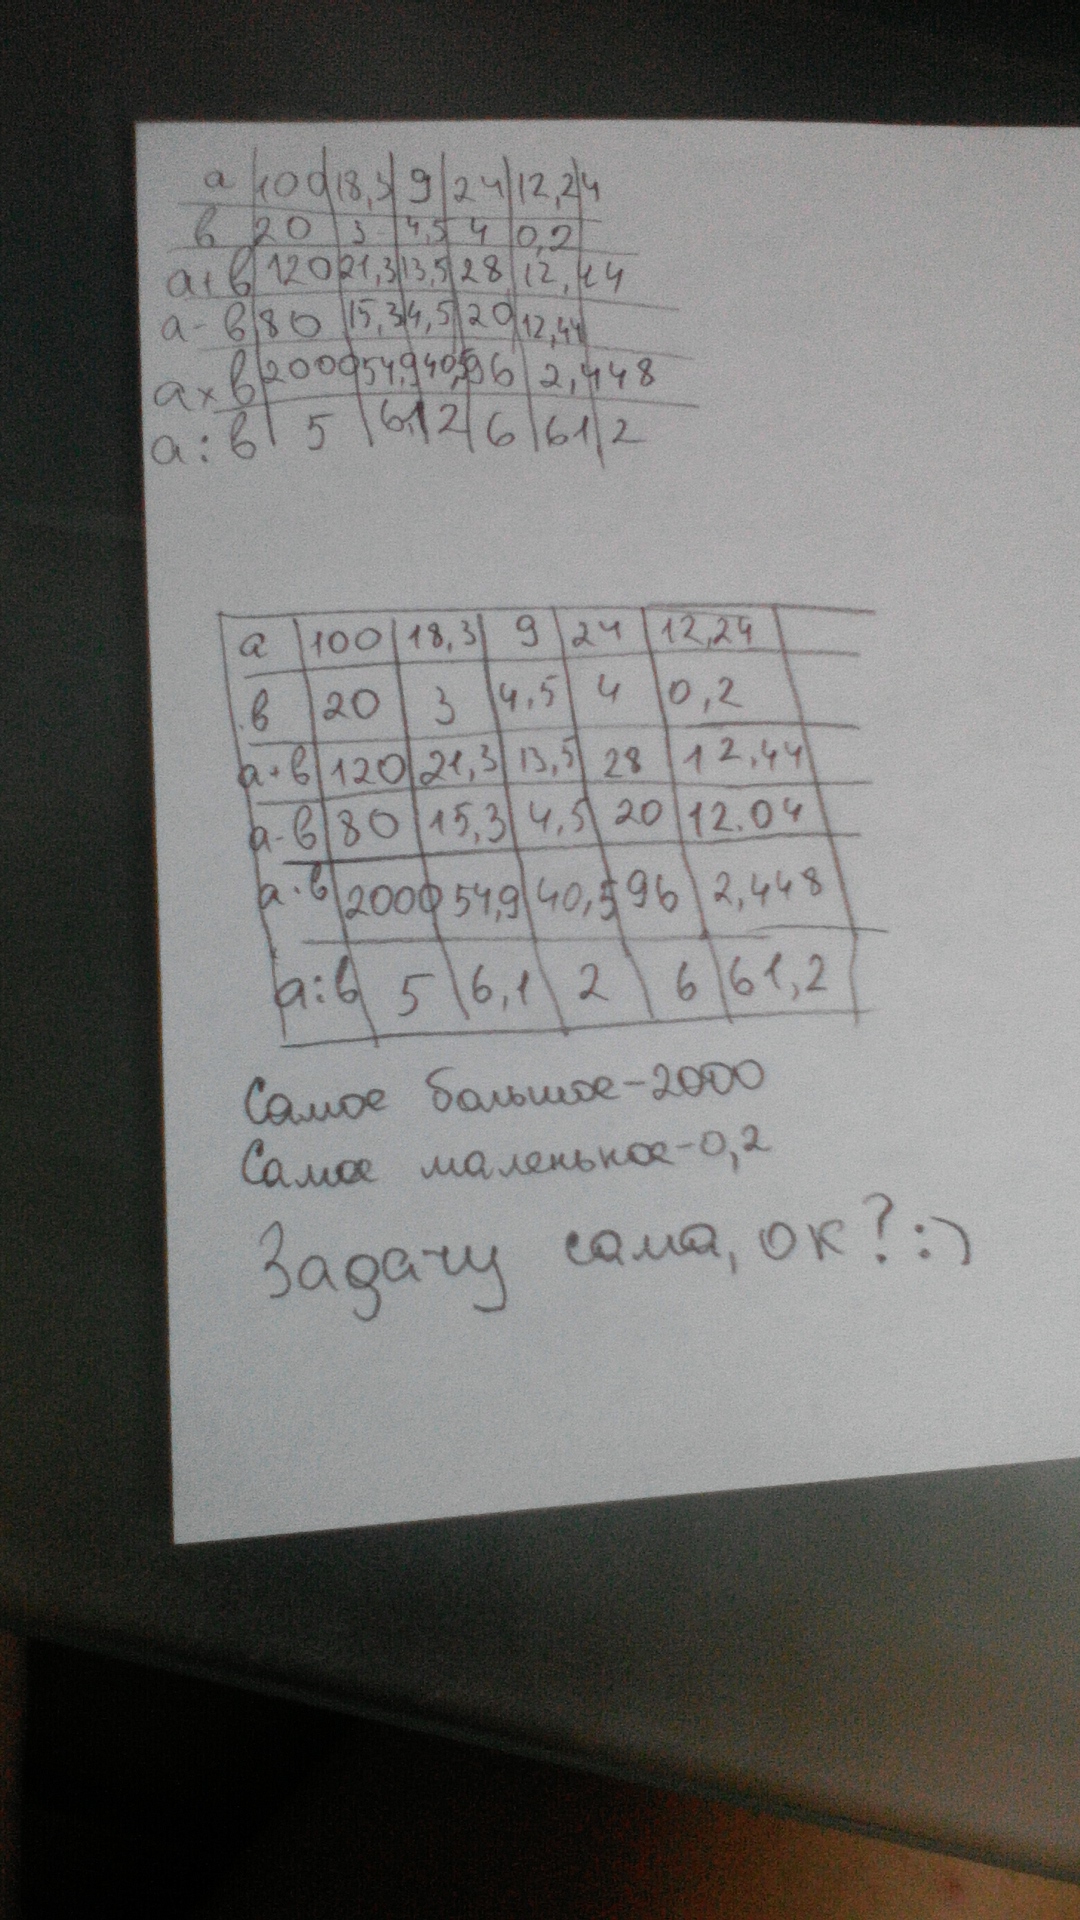 а 100 18,3 9 24 12,24
в 20 3 4,5 4 0,2
а+в 120 21,3 13,5 28 12,44
а-в 80 15,3 4,5 20 12,44
а×в 2000 54,9 40,5 96 2,448
а:в 5 6,1 2 6 61 2
а 100 18,3 9 24 12,24
в 20 3 4,5 4 0,2
а+в 120 21,3 13,5 28 12,44
а-в 80 15,3 4,5 20 12.04
а·в 2000 54,9 40,5 96 2,448
а:в 5 6,1 2 6 61,2
Самое большое-2000
Самое маленькое-0,2
Задачу сама, ок?:)